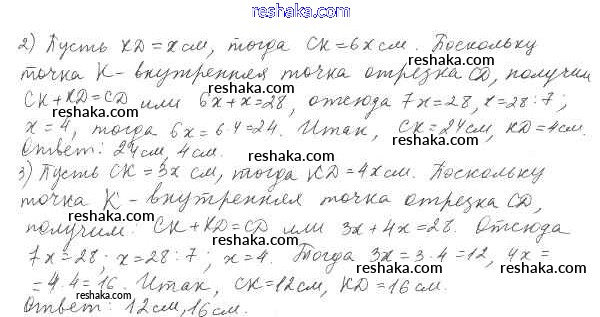 reshaka.com
2) Пусть KD = x см, тогда CK = 6x см. Поскольку
точка K - внутренняя точка отрезка CD, получим
reshaka.com reshaka.com
CK + KD = CD или 6x + x = 28, отсюда 7x = 28, x = 28 : 7;
x = 4, тогда 6x = 6·4 = 24. Итак, CK = 24 см, KD = 4 см.
reshaka.com reshaka.com
Ответ: 24 см, 4 см.
reshaka.com
3) Пусть CK = 3x см, тогда KD = 4x см. Поскольку
reshaka.com
точка K - внутренняя точка отрезка CD,
reshaka.com reshaka.com
получим: CK + KD = CD или 3x + 4x = 28. Отсюда
reshaka.com
7x = 28; x = 28 : 7; x = 4. Тогда 3x = 3·4 = 12, 4x =
reshaka.com reshaka.com
= 4·4 = 16. Итак, CK = 12 см, KD = 16 см.
reshaka.com
Ответ: 12 см, 16 см.
reshaka.com